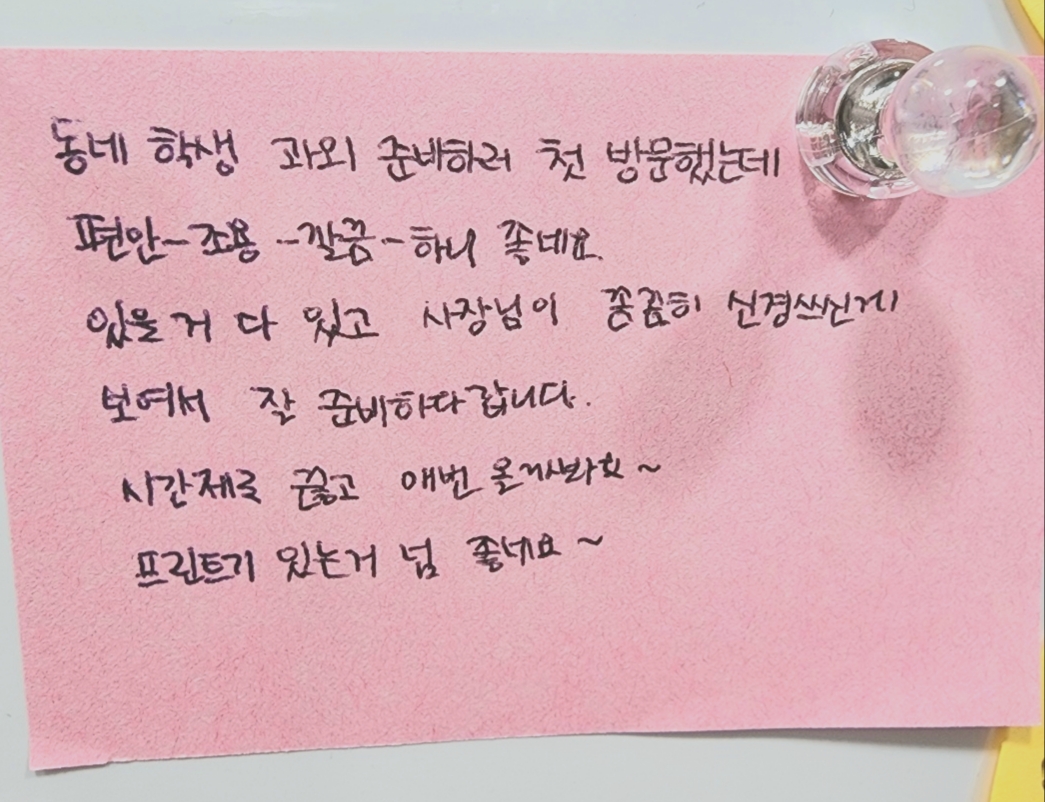 동네 학생 과외 준비하러 첫 방문했는데
편안-조용-깔끔-하니 좋네요.
있을 거 다 있고 사장님이 꼼꼼히 신경쓰신게
보여서 잘 준비하다 갑니다.
시간제로 끊고 애번 올거봐요~
프린트기 있는거 넘 좋네요~